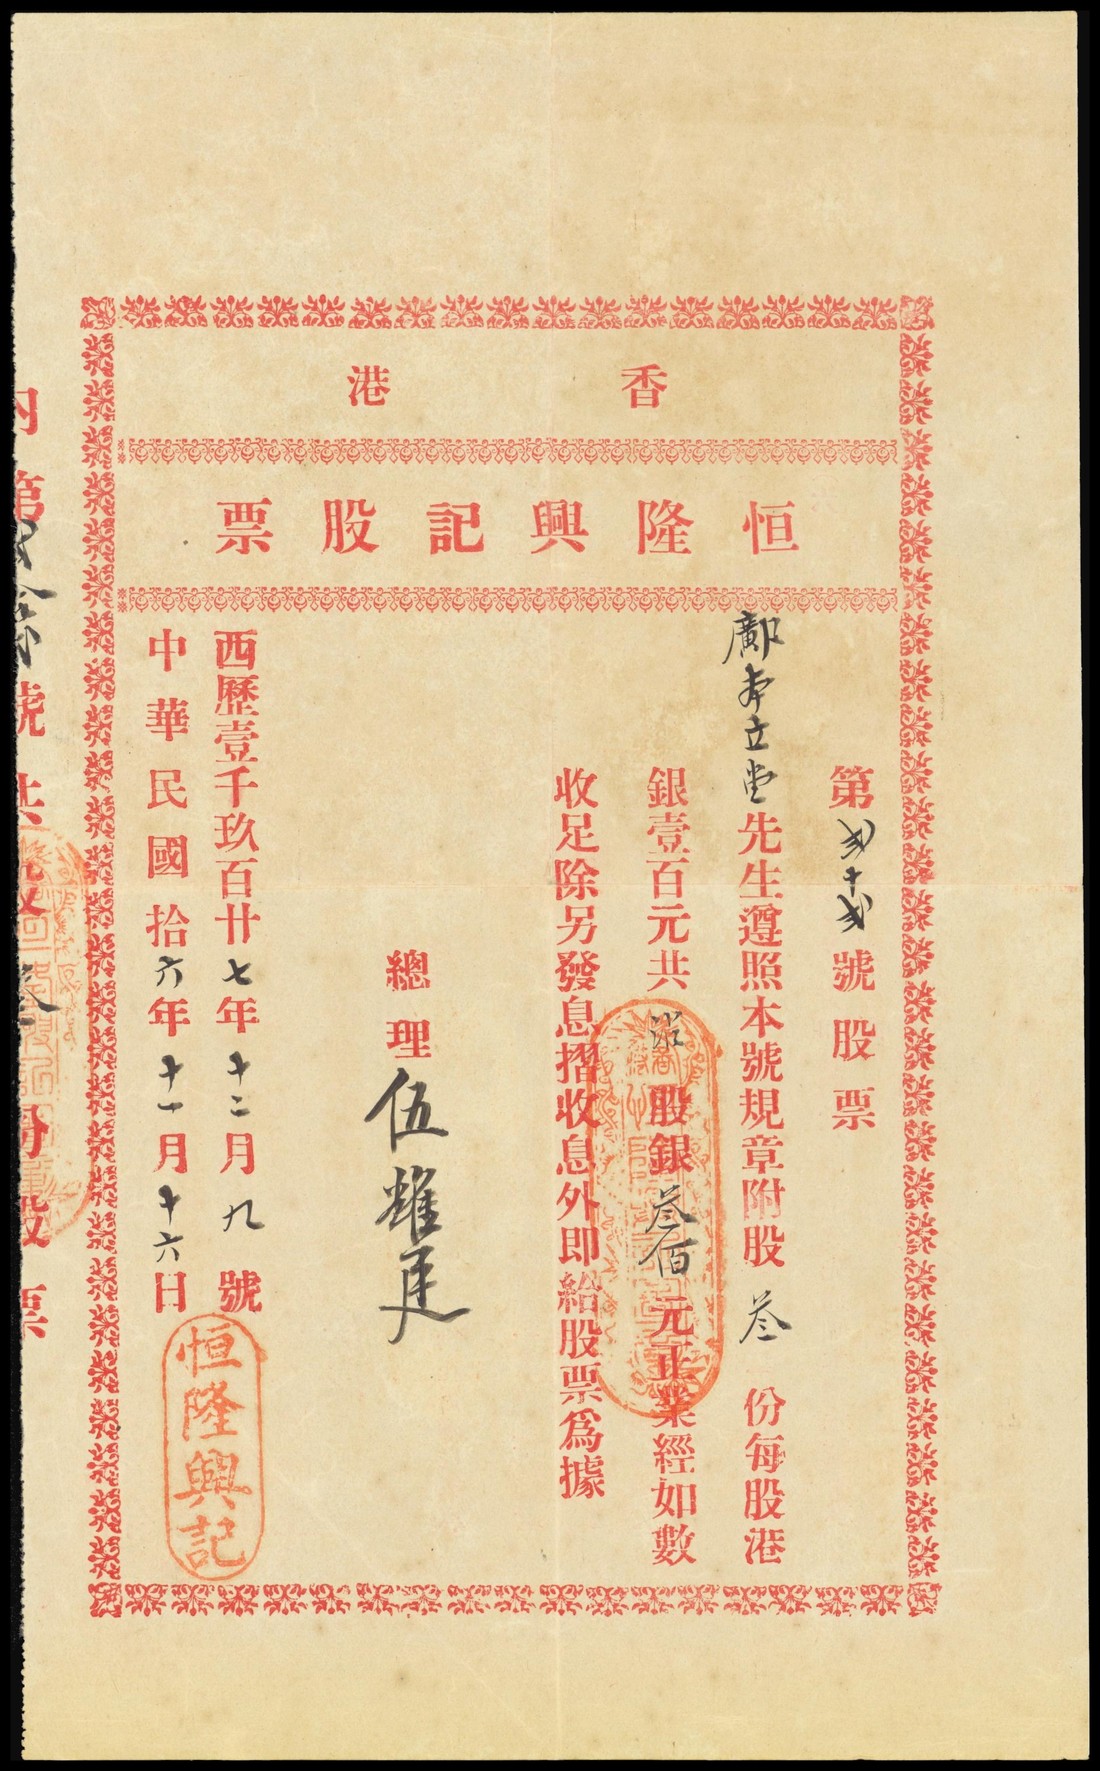 香港
恒隆興記股票
第貳十貳號股票
鄺本立堂先生遵照本號規章附股叁份每股港
銀壹百元共港股銀叁佰元正業經如數
收足除另發息摺收息外即給股票爲據
總理伍耀廷
西歷壹千玖百廿七年十二月九號
中華民國拾六年十一月十六日
恒隆興記